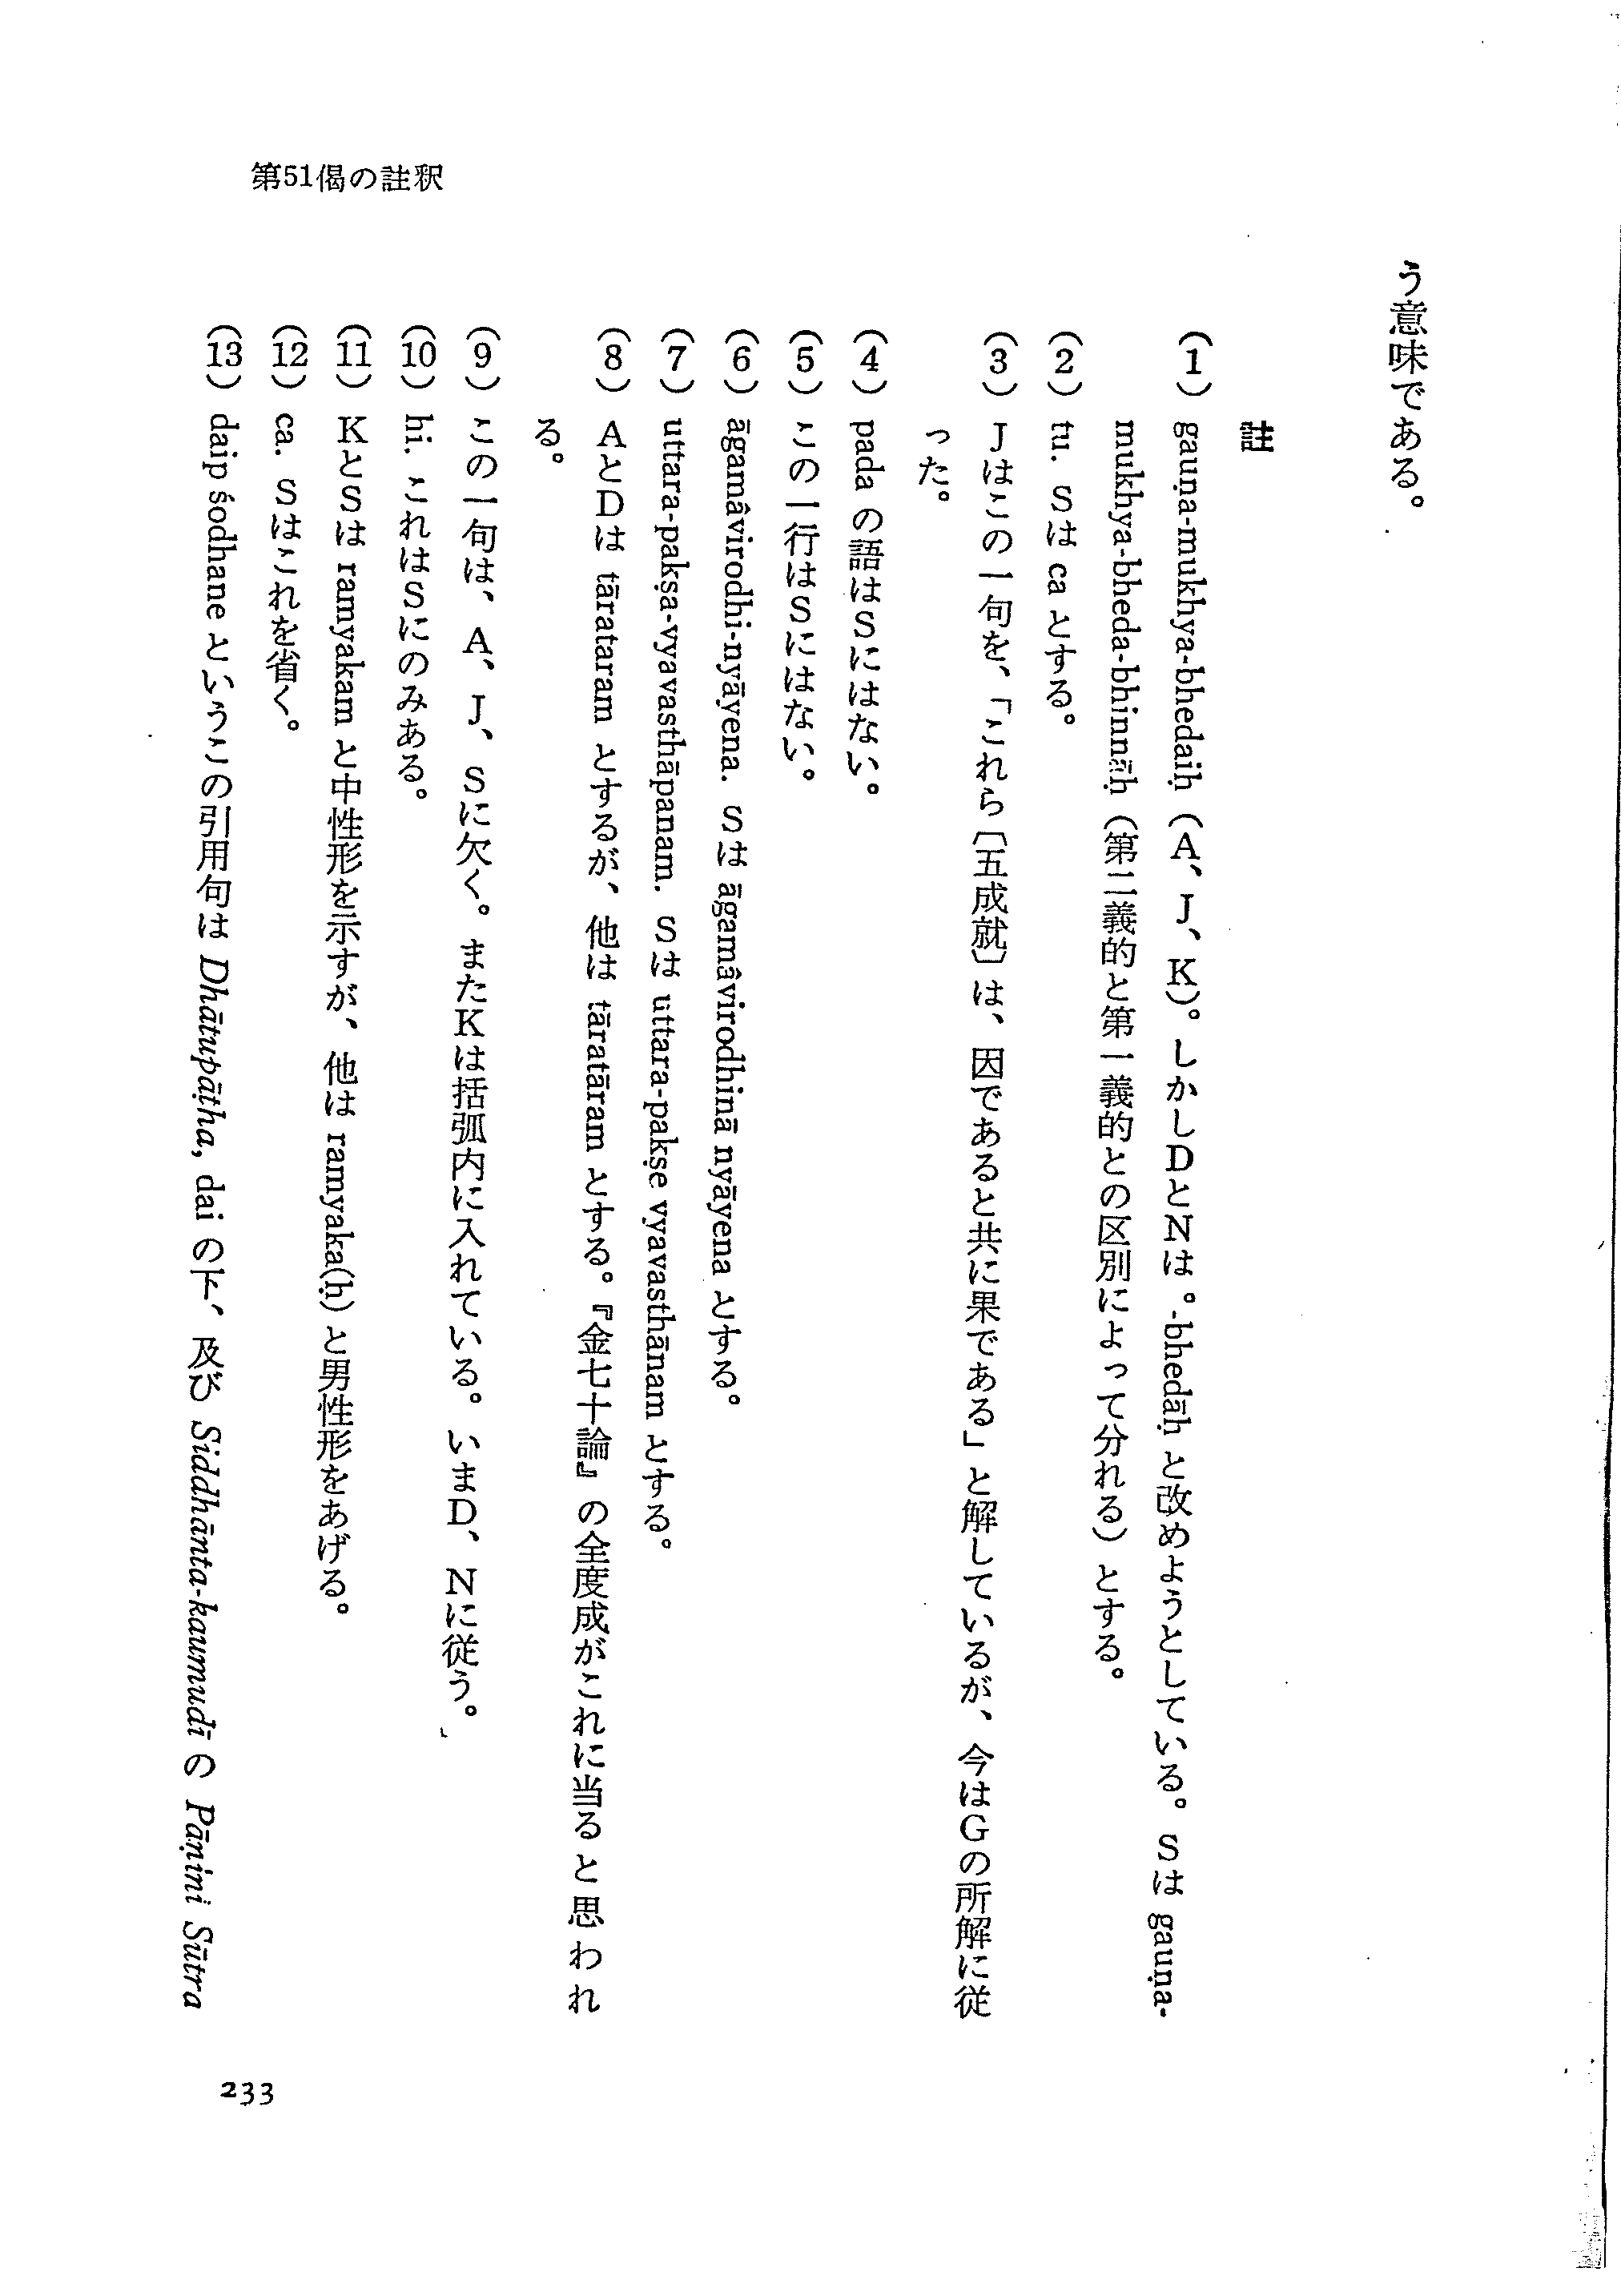 第51偈の註釈
う意味である。
註
(1) gauṇa-mukhya-bhedaiḥ（A、J、K）。しかしDとNは。-bhedāḥ と改めようとしている。Sは gauṇa-
mukhya-bheda-bhinnāḥ（第二義的と第一義的との区別によって分れる）とする。
(2) tu. Sは ca とする。
(3) Jはこの一句を、「これら〔五成就〕は、因であると共に果である」と解しているが、今はGの所解に従
った。
(4) pada の語はSにはない。
(5) この一行はSにはない。
(6) āgamâvirodhi-nyāyena. Sは āgamâvirodhinā nyāyena とする。
(7) uttara-pakṣa-vyavasthāpanam. Sは uttara-pakṣe vyavasthānam とする。
(8) AとDは tārataram とするが、他は tāratāram とする。『金七十論』の全度成がこれに当ると思われ
る。
(9) この一句は、A、J、Sに欠く。またKは括弧内に入れている。いまD、Nに従う。
(10) hi. これはSにのみある。
(11) KとSは ramyakam と中性形を示すが、他は ramyaka(ḥ) と男性形をあげる。
(12) ca. Sはこれを省く。
(13) daip śodhane というこの引用句は Dhātupāṭha, dai の下、及び Siddhānta-kaumudī の Pāṇini Sūtra
233